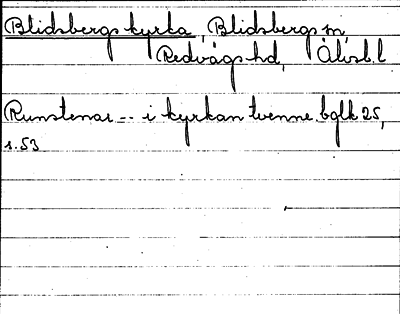 Blidsbergs kyrka, Blidsbergs sn,
Redvägs hd, Älvsb. l
Runstenar -- i kyrkan tvenne. bglk 25,
s. 53